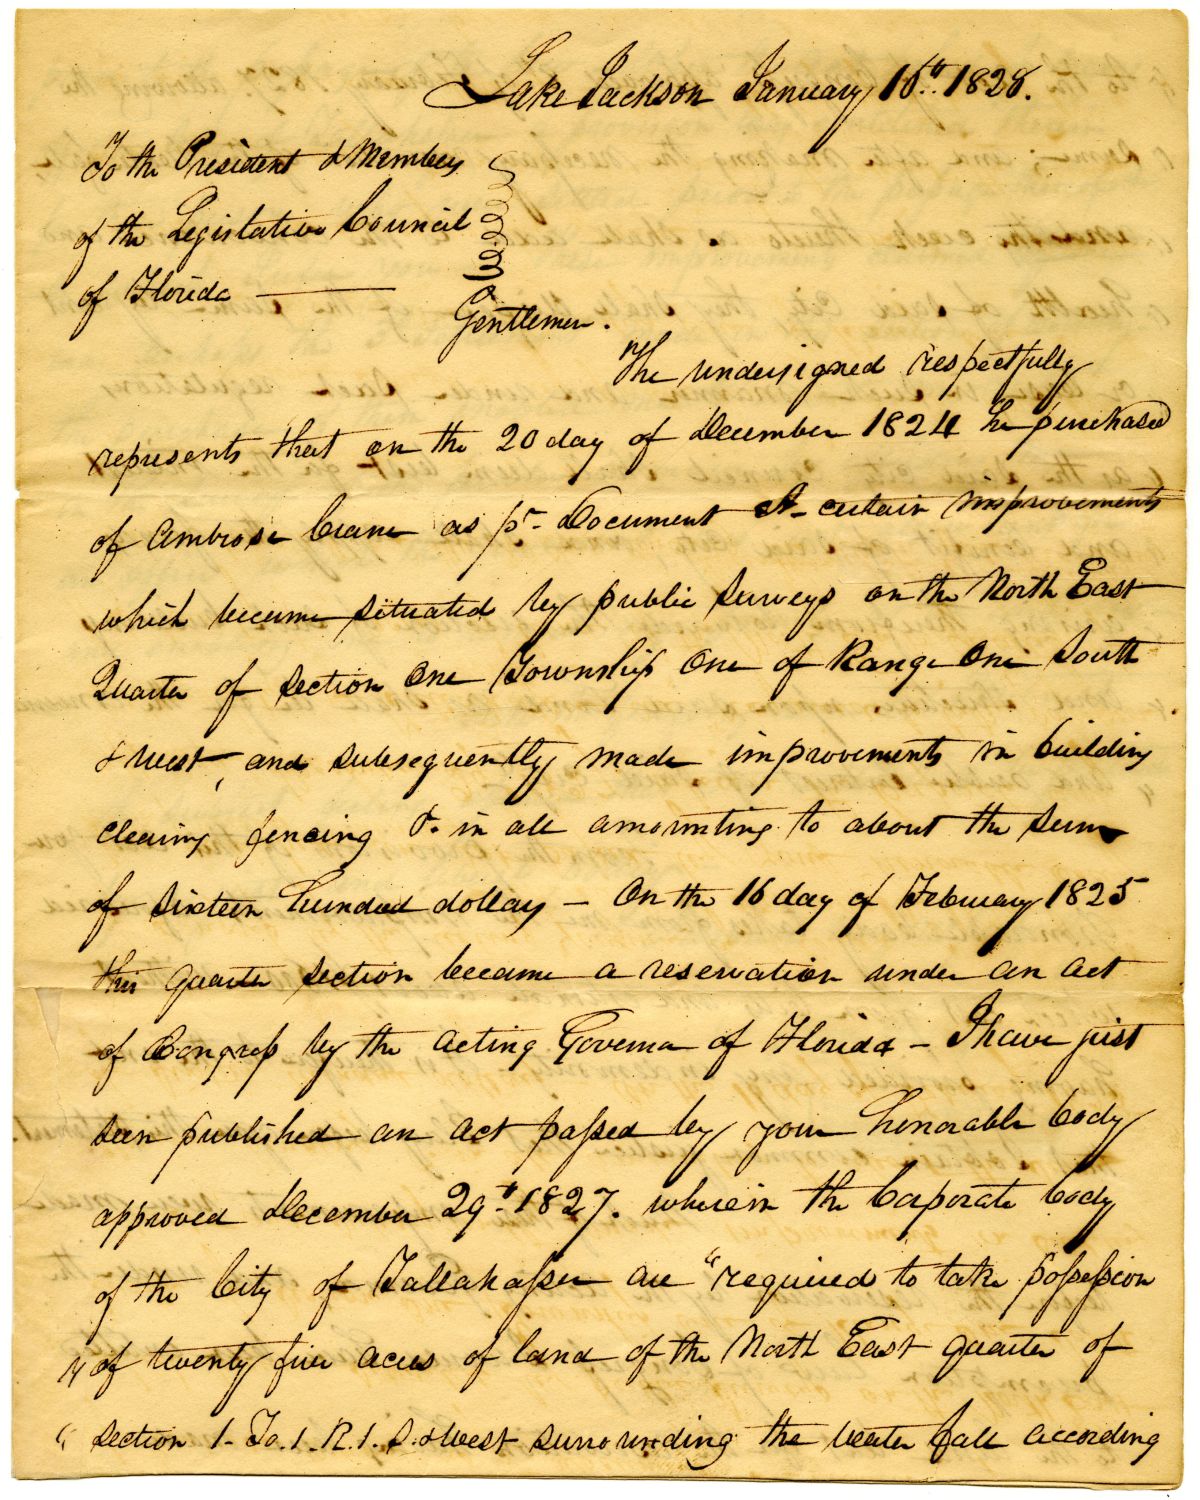 Lake Jackson January 16th. 1828.
To the President & Members
of the Legislative Council
of Florida
Gentlemen.
The undersigned respectfully
represents that on the 20 day of December 1824 he purchased
of Ambrose Crane as pr. Document A. certain improvements
which became situated by public surveys on the North East
Quarter of Section One Township One of Range One South
& West, and subsequently made improvements in building
clearing fencing &. in all amounting to about the sum
of Sixteen hundred dollars – On the 16 day of February 1825
this quarter section became a reservation under an act
of Congress by the acting Governor of Florida – I have just
seen published an act passed by your honorable body
approved December 29th 1827. wherein the Corporate body
of the City of Tallahassee are "required to take possession
" of twenty five acres of land of the North East quarter of
" section 1. To. 1. R. 1. S. & West surrounding the water fall according